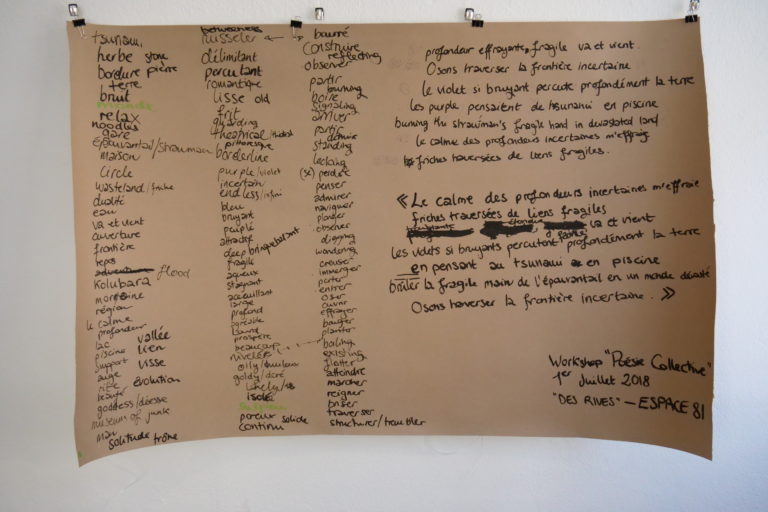 tsunami
herbe stone
bordure pierre
terre
brut
monde
relax
noodles
gare
épouvantail/strawman
maison
circle
wasteland/friche
dualité
eau
va et vient
ouverture
frontière
repos
Kolubara flood
région
le calme
profondeur
lac vallée
piscine lien
support lisse
auge
évolution
beauté
goddess/déesse
museum of junk
solitude trône
betweeness
ruisseler
délimitant
percutant
romantique
lisse old
guarding
theatrical
pittoresque
borderline
purple/violet
incertain
endless/infini
bleu
bruyant
peuplé
attractif
deep
fragile
aqueux
accueillant
large
profond
agréable
lourd
prospère
beaucoup
nivelée
oily/
goldy/doré
isolé
poreux solide
continu
bourré
construire
reflecting
observer
partir
burning
boire
signaling
arriver
partir
standing
(se) perdre
penser
admirer
naviguer
observer
digging
wondering
creuser
immerger
porter
entrer
oser
ouvrir
effrayer
planter
boiling
existing
flotter
atteindre
marcher
reigner
briser
traverser
structurer/troubler
profondeur effrayante, fragile va et vient.
Osons traverser la frontière incertaine
le violet si bruyant percute profondément la terre
les purple pensaient de tsunami en piscine
burning the strawman's fragile hand in devastated land
le calme des profondeurs incertaines m'effraie
friches traversées de liens fragiles.
« Le calme des profondeurs incertaines m'effraie
friches traversées de liens fragiles
va et vient
les violets si bruyants percutent profondément la terre
en pensant au tsunami en piscine
brûler la fragile main de l'épouvantail en un monde dévasté
Osons traverser la frontière incertaine. »
Workshop "Poésie Collective"
1er Juillet 2018
"DES RIVES" — ESPACE 81